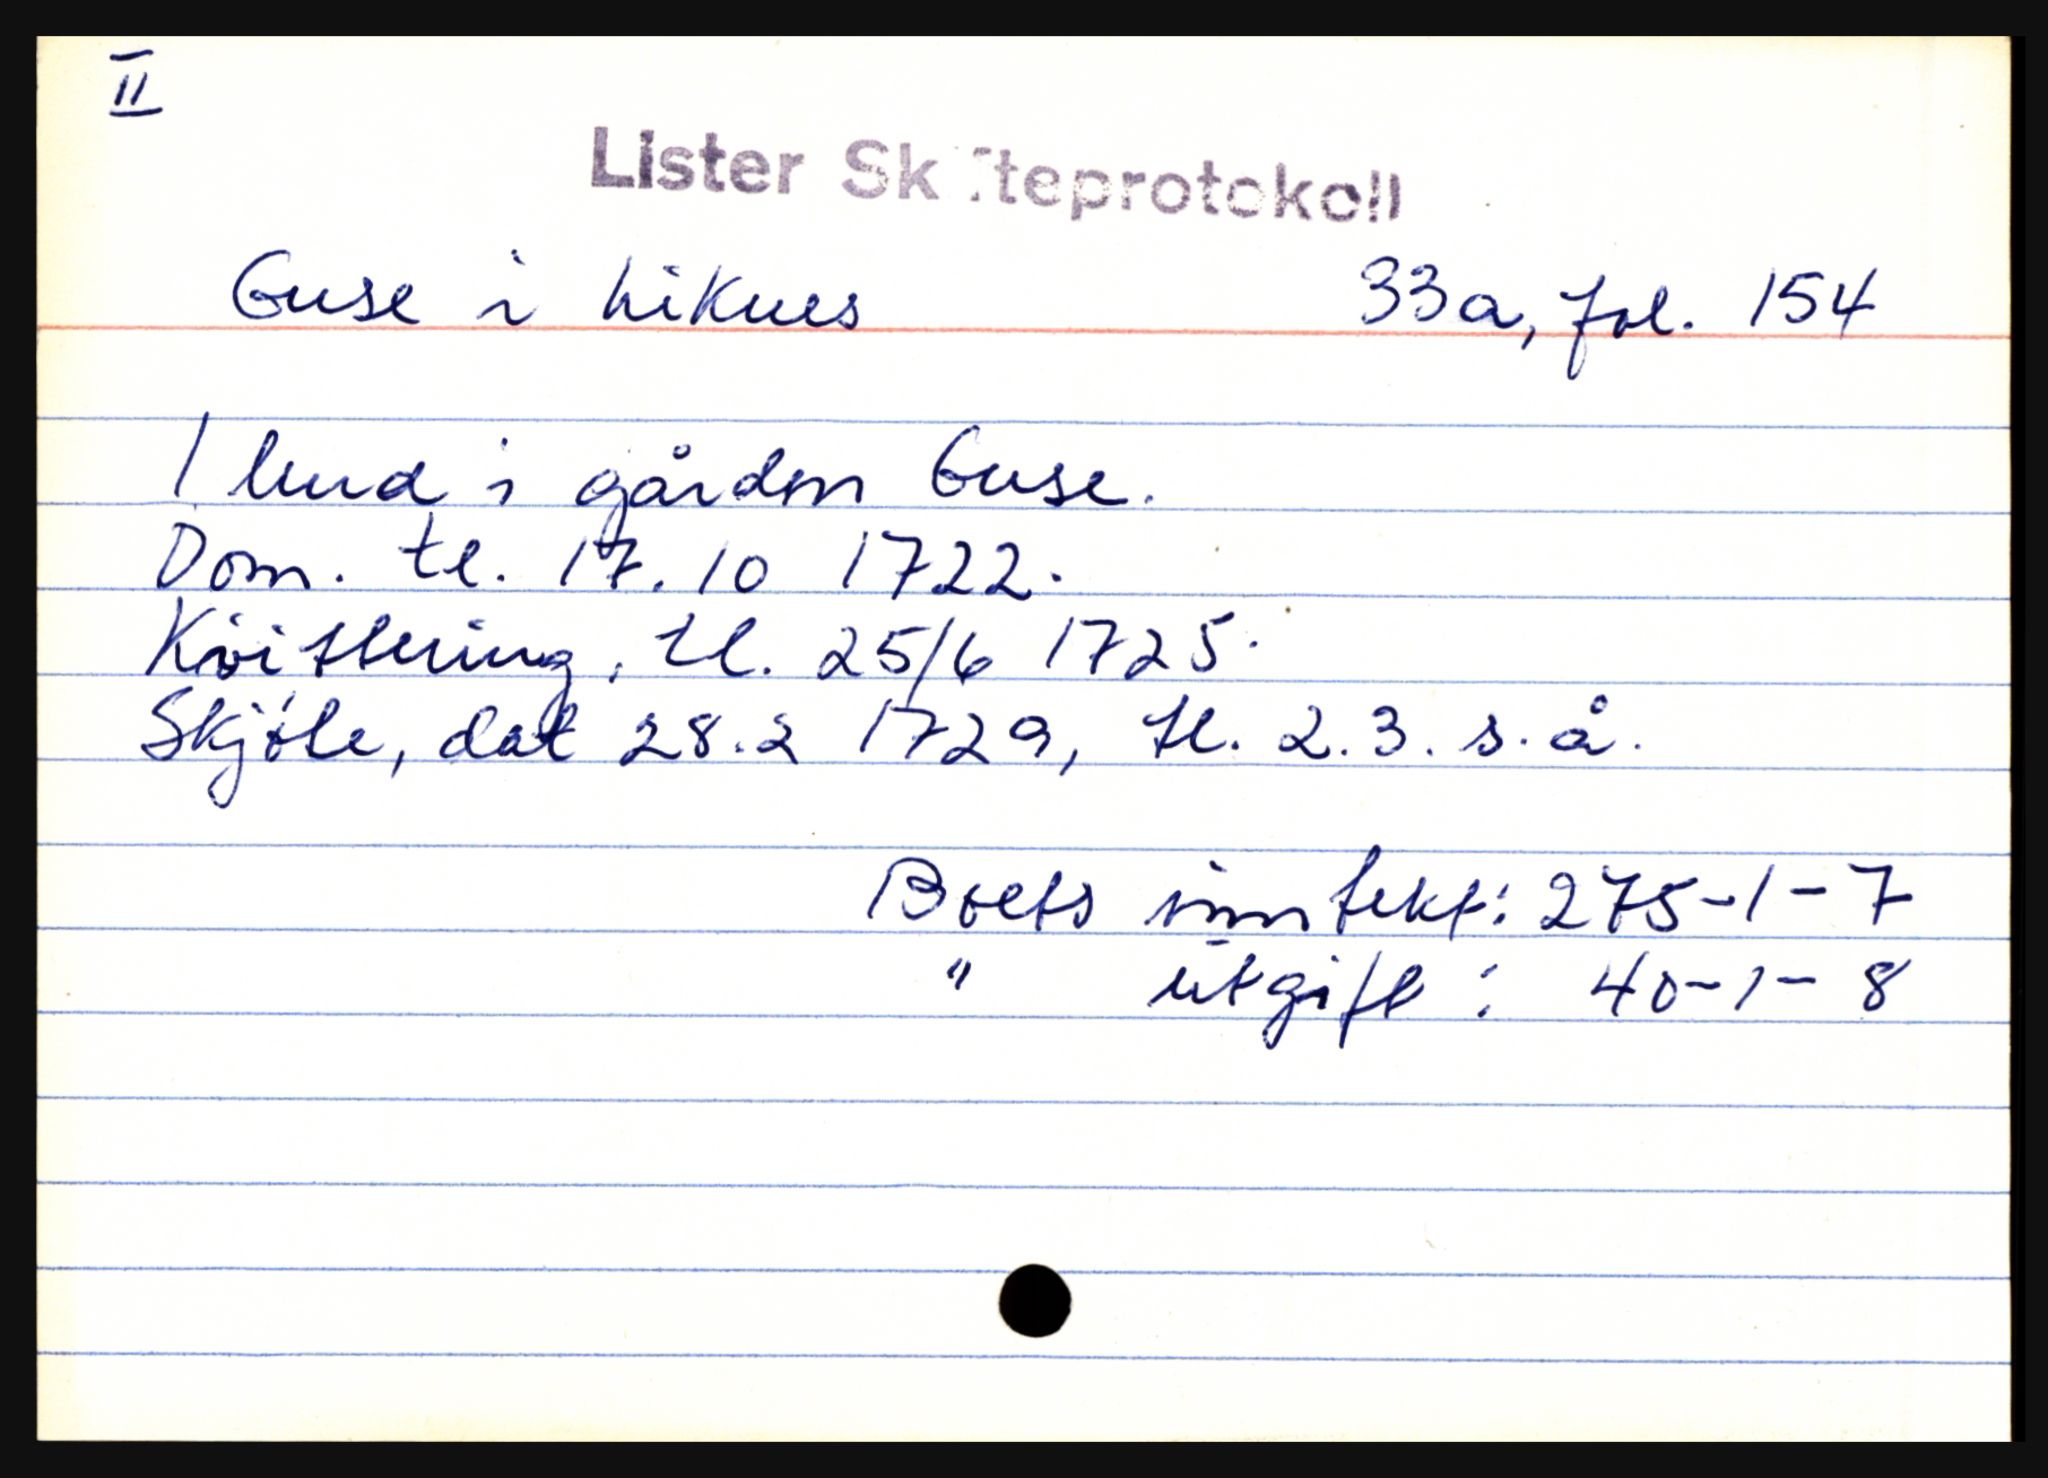 II
Lister Skifteprotokoll
Guse i hiknes 33a, fol. 154
1 hud i gården Guse.
Dom. tl. 17.10 1722.
Kvittering, tl. 25/6 1725.
Skjöte, dat 28.2 1729, tl. 2.3. s.å.
Boets inntekt: 275-1-7
" utgift: 40-1-8